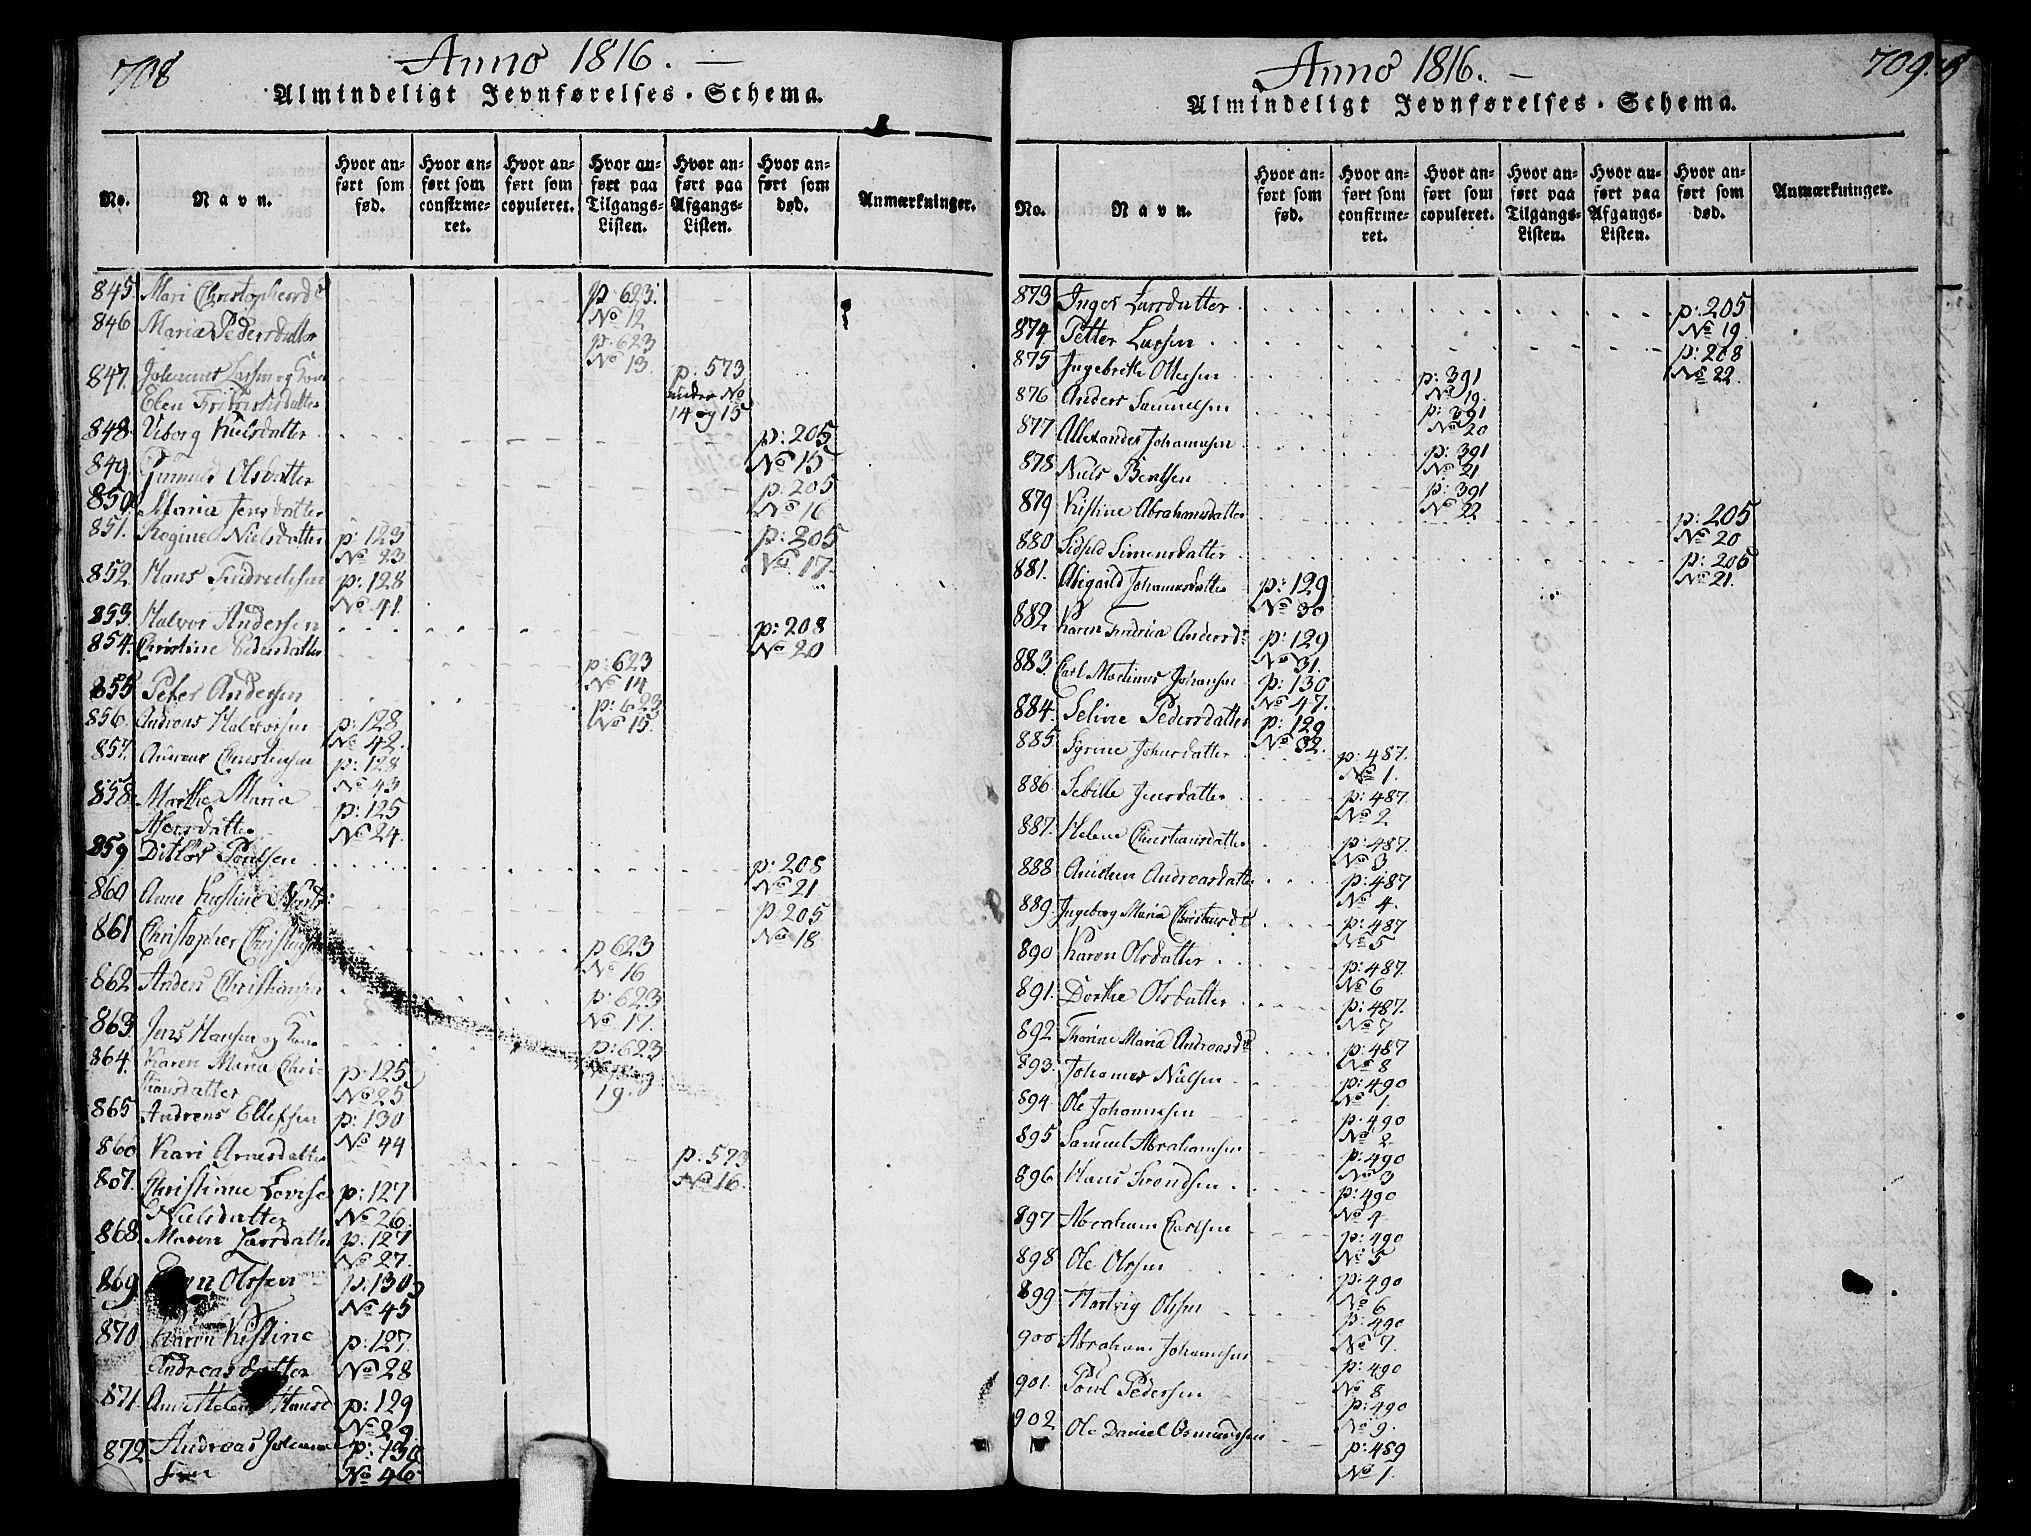 708
Anno 1816.
Almindeligt Jevnførelses-Schema.
No.
Navn.
Hvor an-
ført som
fød.
Hvor an-
ført som
confirme-
ret.
Hvor an-
ført som
copuleret.
Hvor an-
ført paa
Tilgangs-
Listen.
Hvor an-
ført paa
Afgangs-
Listen.
Hvor an-
ført som
død.
Anmærkninger.
845 Mari Christophersd. p: 623. No 12
846 Maria Pedersdatter p: 623 No 13.
847. Johannes Larsen og Kone
Elen Fridrichsdatter p: 573 under No 14 og 15
848. Viborg Nielsdatter p: 205 No 15
849. Gunnild Olsdatter p: 205 No 16
850. Maria Jensdatter p: 205 No 17.
851. Regine Nielsdatter p: 123 No 23
852. Hans Fredrichsen p: 128 No 41
853. Halvor Andersen p: 208 No 20
854. Christine Pedersdatter p: 623 No 14
855 Peter Andersen p: 623 No 15.
856. Andreas Halvorsen p: 128 No 42.
857. Andreas Christensen p: 128 No 43
858. Marthe Maria
datter p: 125 No 24.
859 Ditlov Poulsen p: 208 No 21
860 Anne Kirstine p: 205 No 18
861 Christopher p: 623 No 16
862. Anders Christiansen p: 623 No 17.
863. Jens Hansen og Kone p: 623 19.
864. Karen Maria Chri-
stiansdatter p: 125 No 25
865 Andreas Ellefsen p: 130 No 44
866 Kari Arnesdatter p: 573 No 16.
867. Christiane Lovise
Nielsdatter p: 127 No 26.
868. Maren Larsdatter p: 127 No 27.
869 Olsen p: 130 No 45
870 Karen Kistine
Andreasdatter p: 127. No 28
871. Anne Helene Hansd p: 129 No 29
872. Andreas Johanne-
sen p: 130 No 46
709.
Anno 1816.
Almindeligt Jevnførelses-Schema.
No.
Navn.
Hvor an-
ført som
fød.
Hvor an-
ført som
confirme-
ret.
Hvor an-
ført som
copuleret.
Hvor an-
ført paa
Tilgangs-
Listen.
Hvor an-
ført paa
Afgangs-
Listen.
Hvor an-
ført som
død.
Anmærkninger.
873 Inger Larsdatter p: 205 No 19
874. Petter Larsen p: 208 No 22.
875 Ingebrette Ollesen p: 391 No 19.
876 Anders Samuelsen p: 391 No 20
877 Allexander Johannesen p: 391 No 21
878 Niels Bentsen p: 391 No 22
879 Kistine Abrahamsdatter p: 205 No 20
880 Sidsel Simensdatter p: 205 No 21.
881. Abigaild Johannesdatter p: 129 No 30
882. Karen Andrea Andersd. p: 129 No 31.
883. Carl Martinus Johansen p: 130 No 47.
884. Seline Pedersdatter p: 129 No 32.
885. Syrine Johnsdatter p: 487. No 1.
886. Sebille Jensdatter p: 487. No 2
887. Helene Christiansdatter p: 487. No 3
888. Anichen Andreasdatter p: 487 No 4.
889. Ingeborg Maria Christensd p: 487 No 5
890 Karen Olsdatter p: 487. No 6
891. Dorthe Olsdatter p: 487. No 7
892. Thorine Maria Andreasd p: 487 No 8
893. Johannes Nielsen p: 490 No 1.
894. Ole Johannesen p: 490 No 2
895 Samuel Abrahamsen p: 490 No 3
896 Hans Svendsen p: 490 No 4
897 Abraham Carlsen p: 490 No 5
898 Ole Olsen p: 490 No 6
899 Hartvig Olsen p: 490 No 7.
900 Abraham Johannesen p: 490 No 8
901. Poul Pedersen p: 490 No 9.
902 Ole Daniel Osmundsen p: 489 No 1.